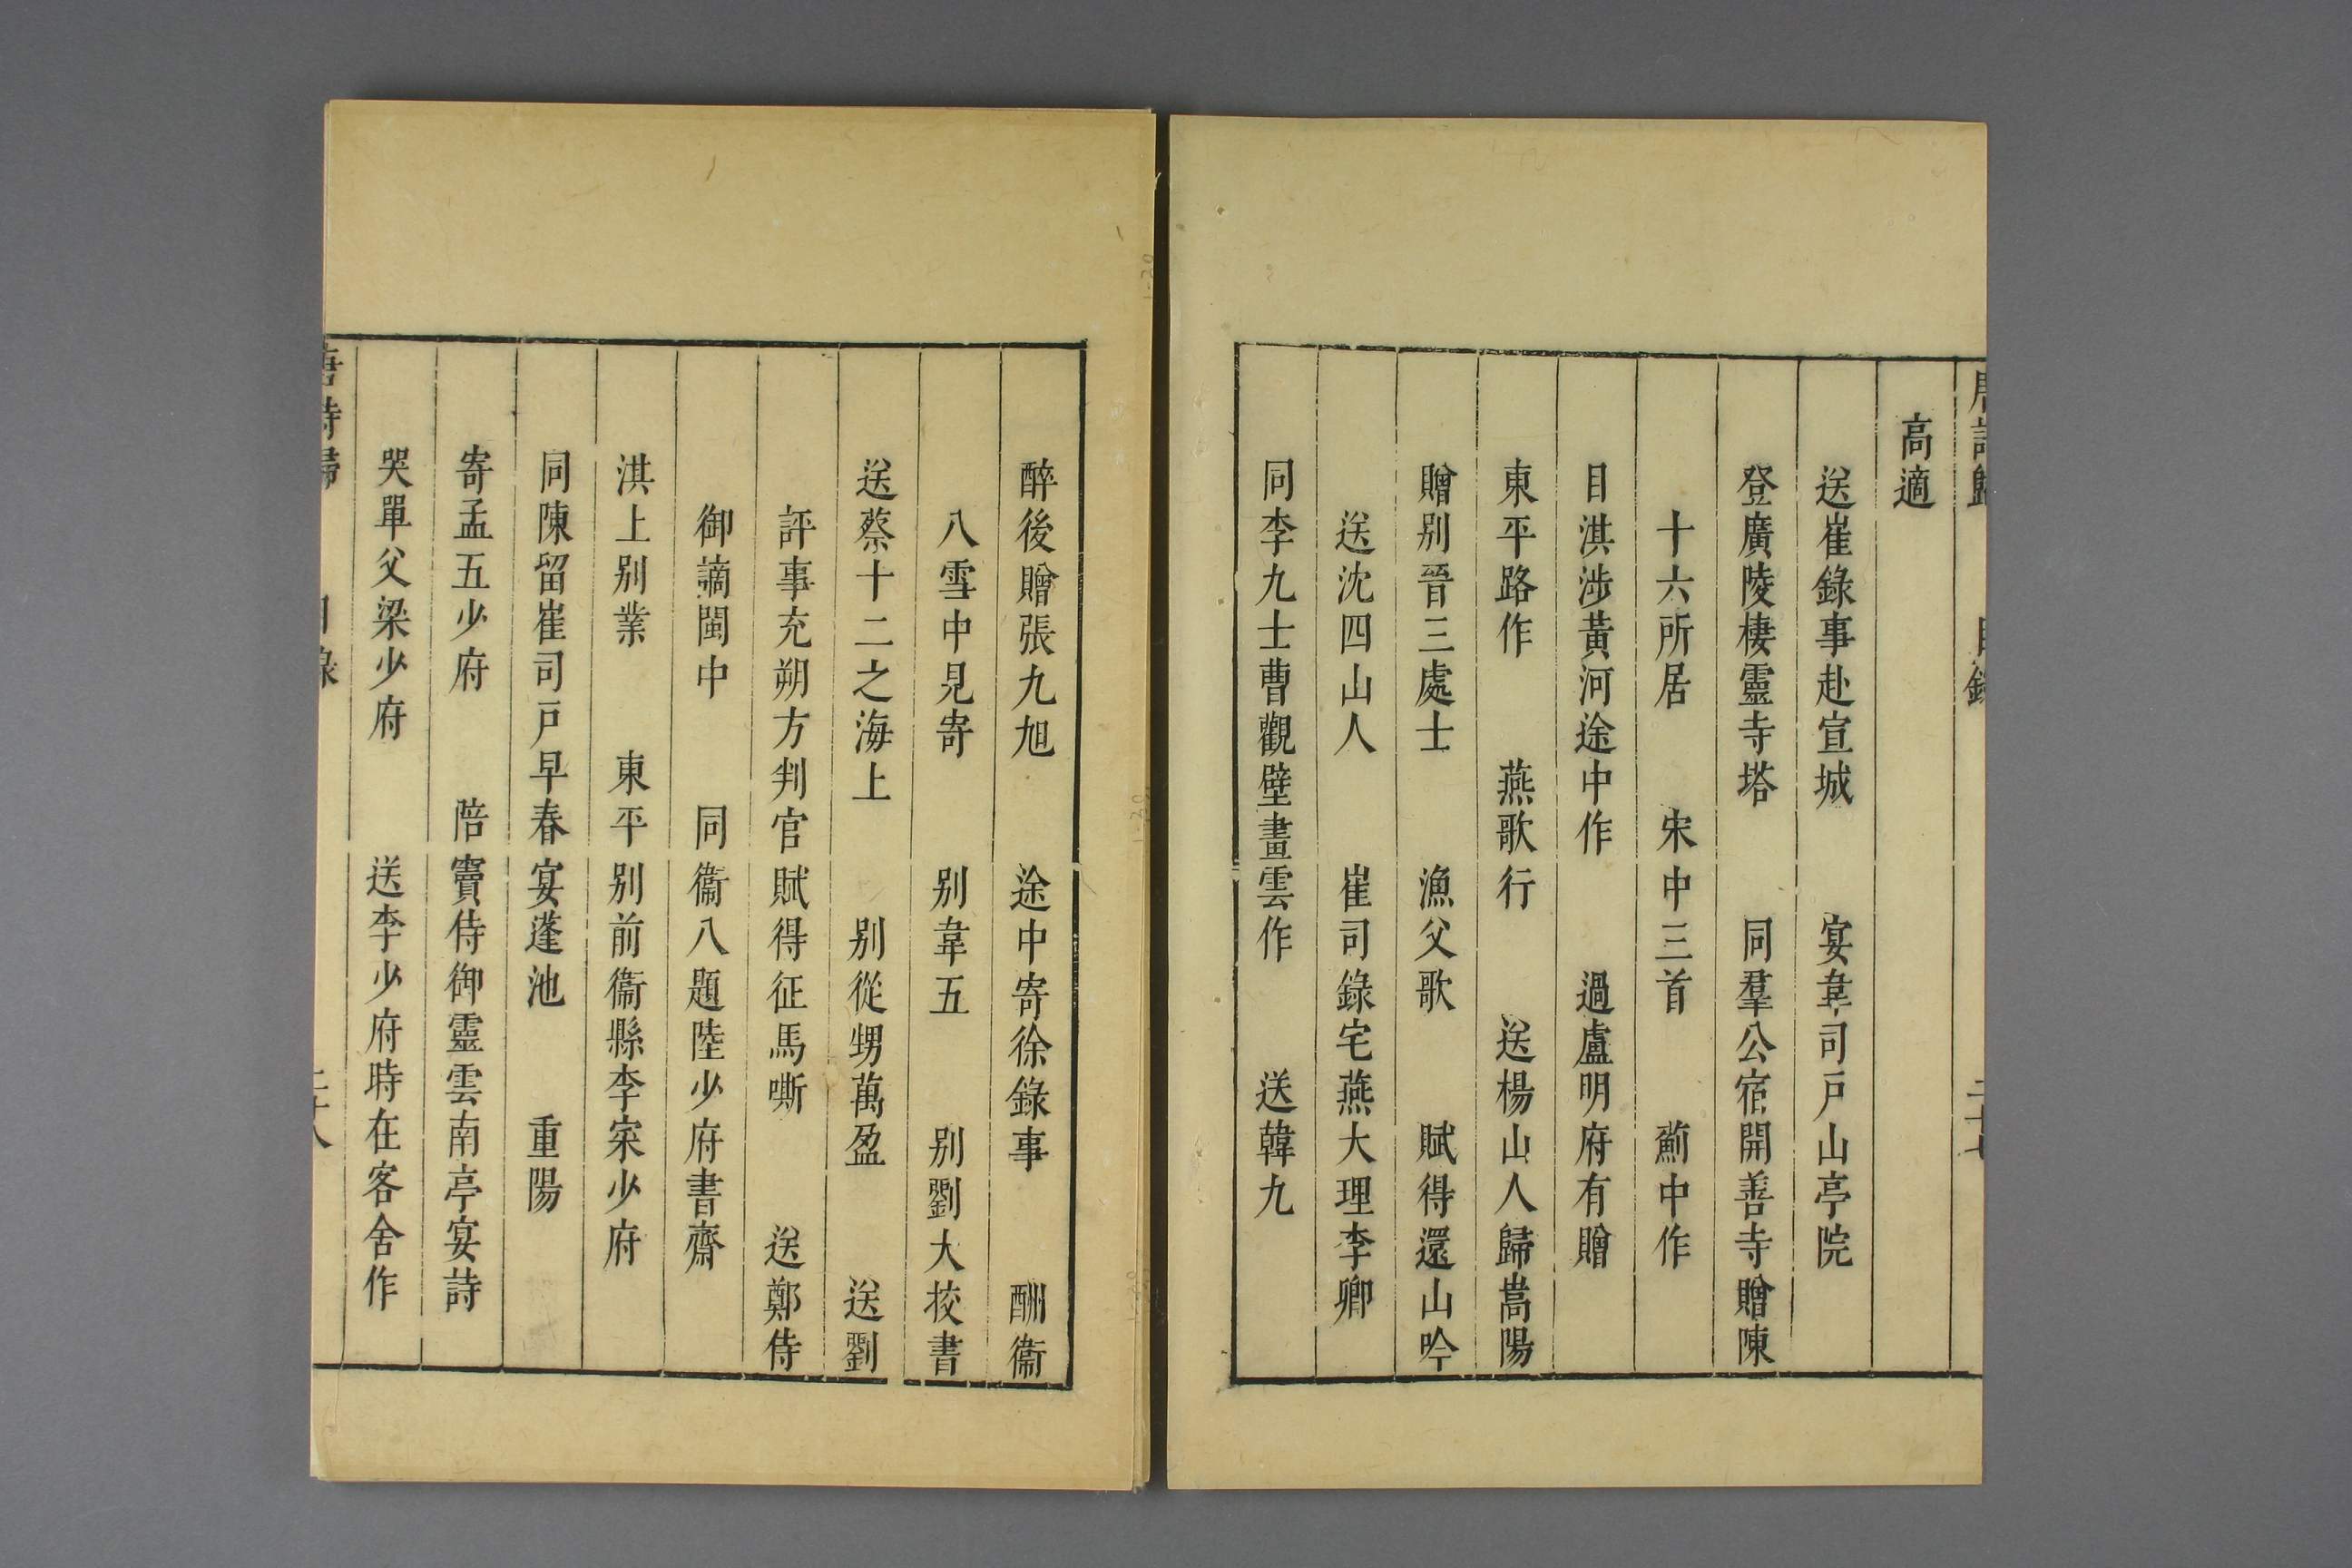 唐詩歸　目錄　二十七
高適
送崔錄事赴宣城　宴韋司戸山亭院
登廣陵棲靈寺塔　同羣公宿開善寺贈陳
十六所居　宋中三首　薊中作
自淇涉黃河途中作　過盧明府有贈
東平路作　燕歌行　送楊山人歸嵩陽
贈别晉三處士　漁父歌　賦得還山吟
送沈四山人　崔司錄宅燕大理李卿
同李九士曹觀壁畫雲作　送韓九
醉後贈張九旭　途中寄徐錄事　酬衞
八雪中見寄　别韋五　别劉大挍書
送蔡十二之海上　别從甥萬盈　送劉
評事充朔方判官賦得征馬嘶　送鄭侍
御謫閩中　同衞八題陸少府書齋
淇上别業　東平别前衞縣李寀少府
同陳留崔司戸早春宴蓬池　重陽
寄孟五少府　陪竇侍御靈雲南亭宴詩
哭單父梁少府　送李少府時在客舍作
唐詩歸　目錄　二十八